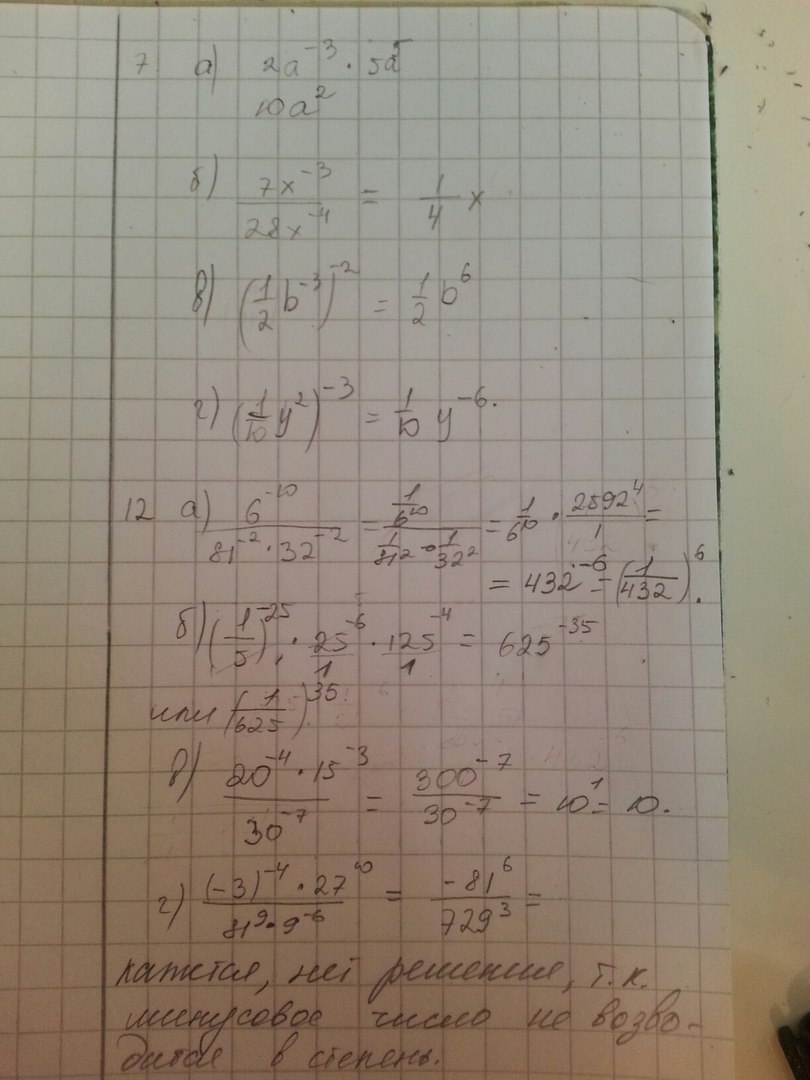 7 а) 2a⁻³ · 5a⁵
10a²
б) 7x⁻³ / 28x⁻⁴ = 1/4 x
в) (1/2 b⁻³)⁻² = 1/2 b⁶
г) (1/10 y²)⁻³ = 1/10 y⁻⁶.
12 а) 6⁻¹⁰ / 81⁻² · 32⁻² = 1/6¹⁰ / 1/81² · 1/32² = 1/6¹⁰ · 2592⁴/1 =
= 432⁻⁶ = (1/432)⁶.
б) (1/5)⁻²⁵ · 25⁻⁶/1 · 125⁻⁴/1 = 625⁻³⁵
или (1/625)³⁵.
в) 20⁻⁴ · 15⁻³ / 30⁻⁷ = 300⁻⁷ / 30⁻⁷ = 10¹ = 10.
г) (-3)⁻⁴ · 27¹⁰ / 81⁹ · 9⁻⁶ = -81⁶ / 729³ =
кажется, нет решения, т.к.
минусовое число не возво-
дится в степень.